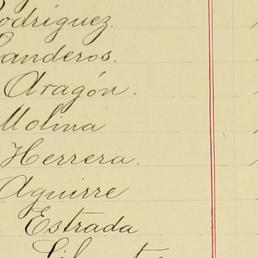 Rodríguez.
Landeros.
Aragón.
Molina
Herrera.
Aguirre
Estrada